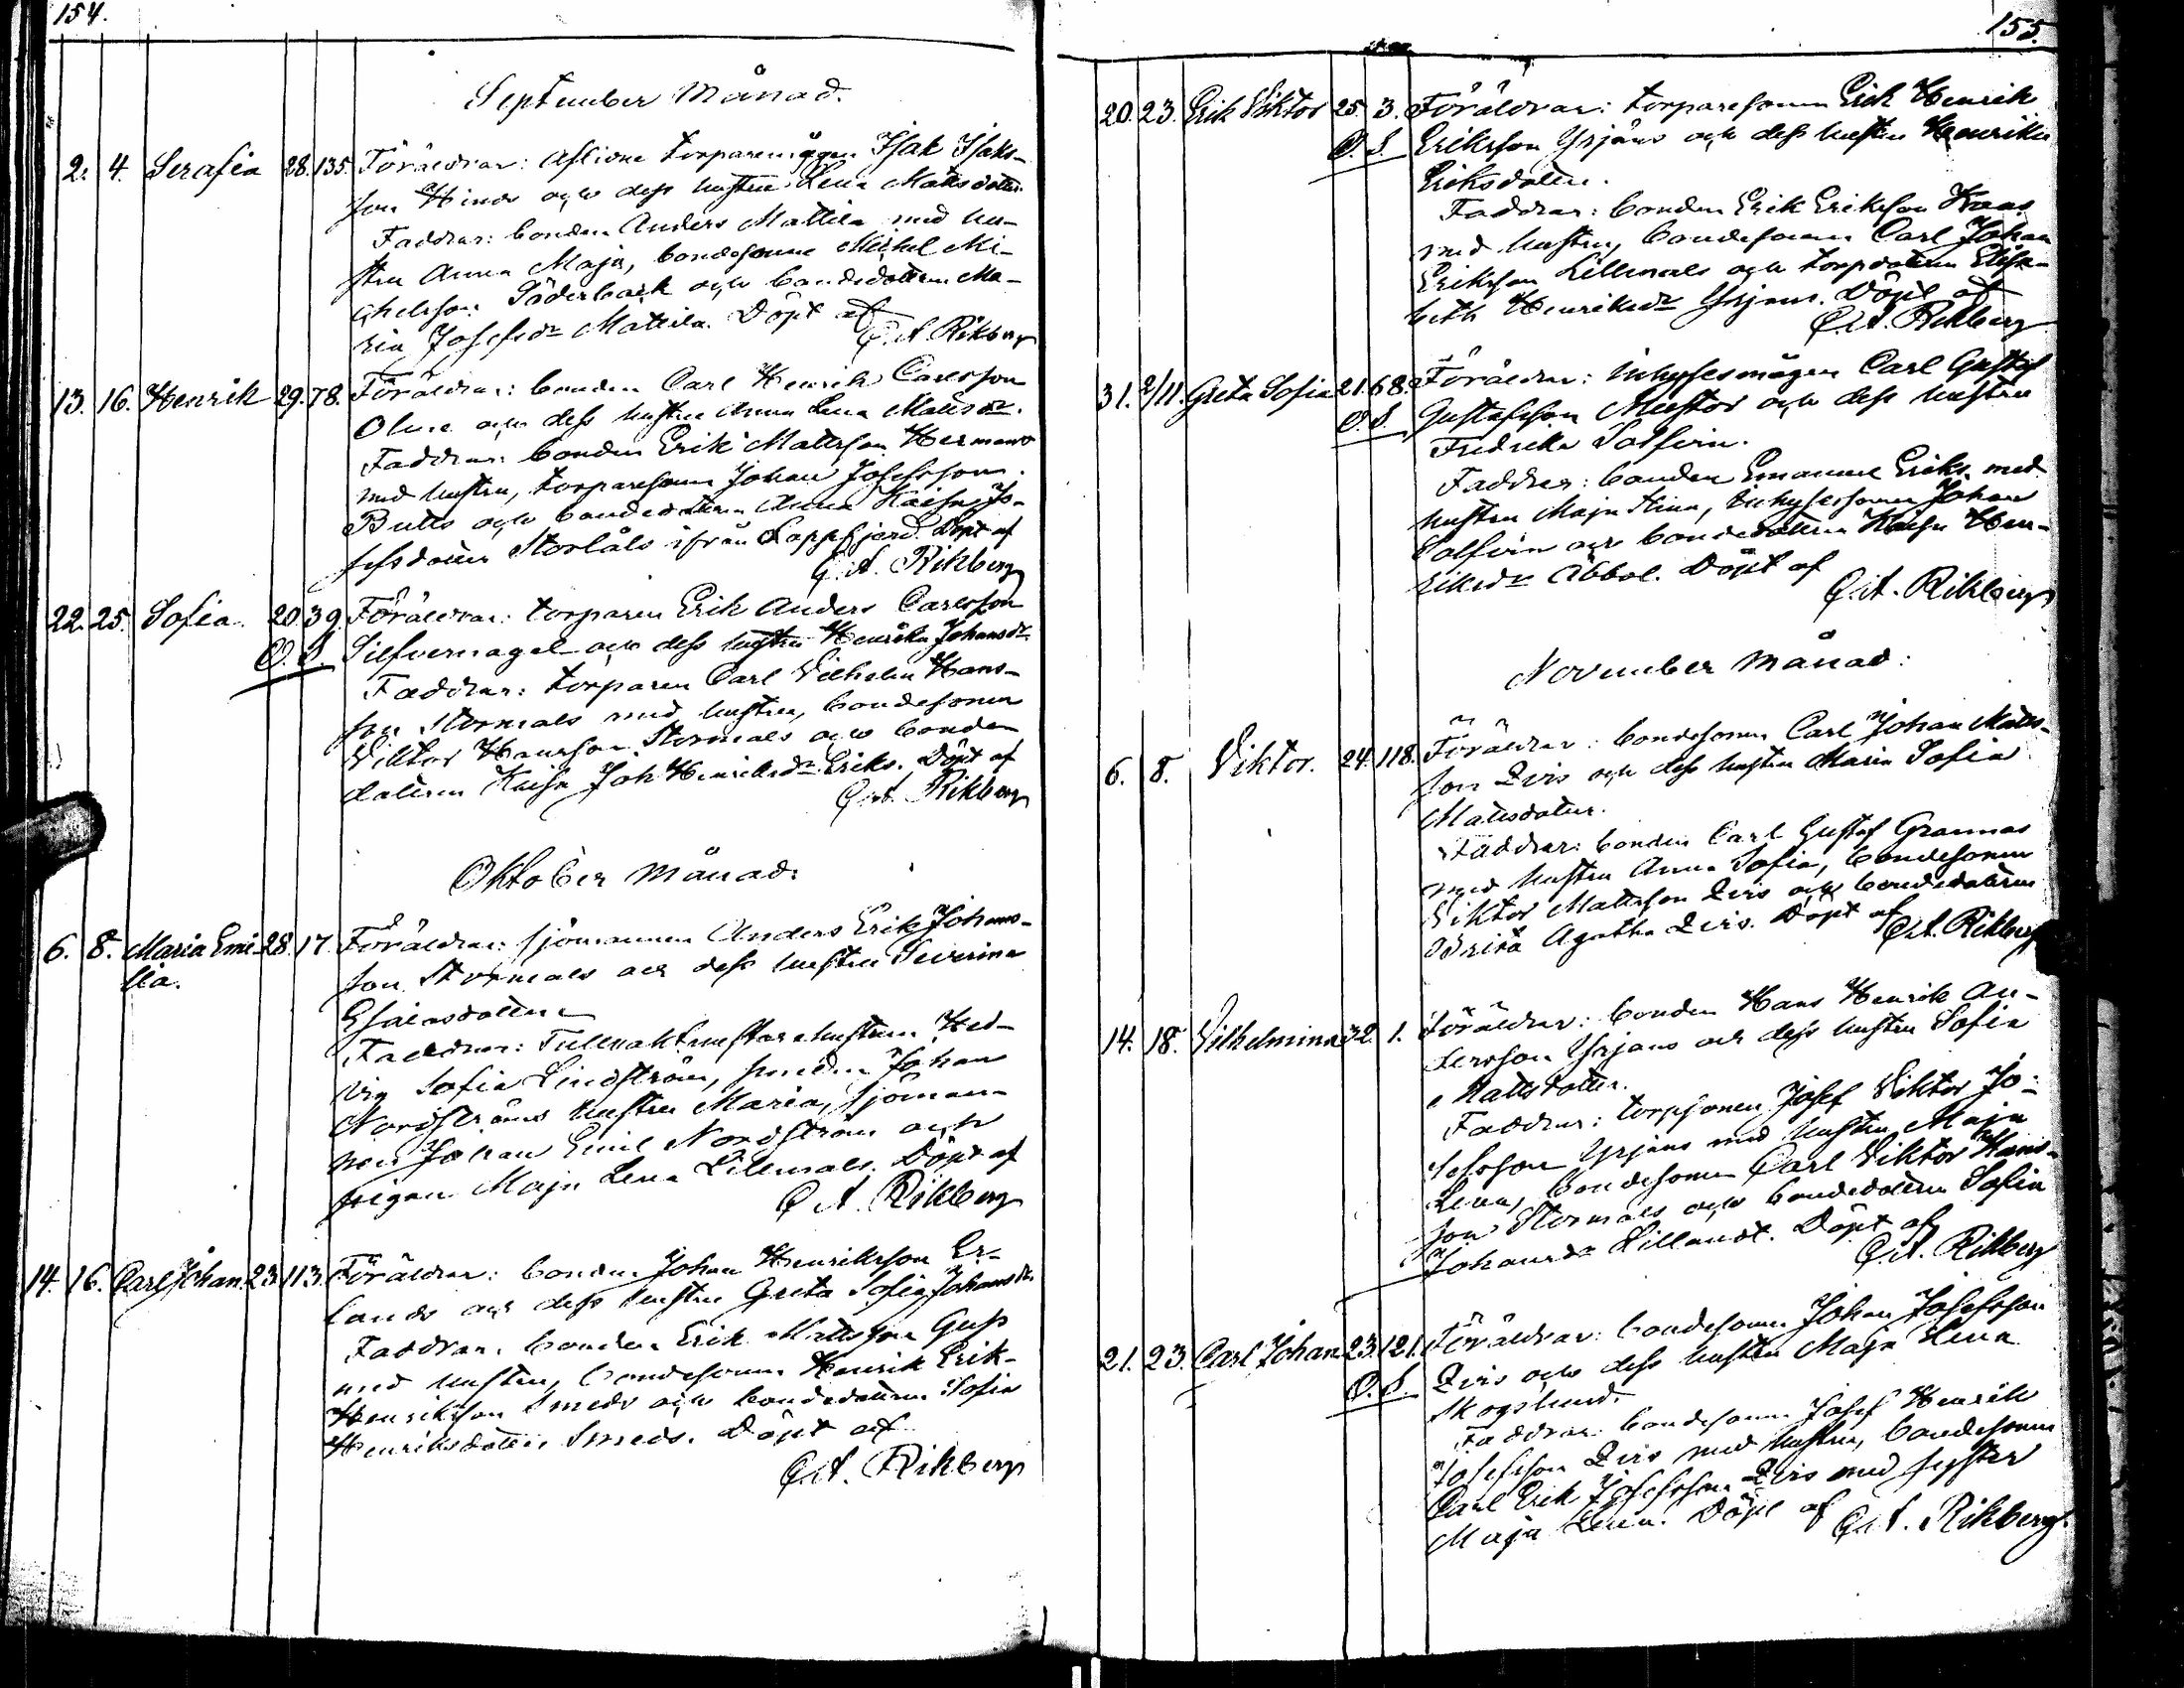 154.
September Månad.
2. 4. Serafia 28. 135. Föräldrar: Aflidne torparemågen Isak Isaks-
son Hinds och dess hustru Lena Mattsdotter.
Faddrar: bonden Anders Mattila med hu-
stru Anna Maja, bondesonen Michel Mi-
chelsson Söderback och bondedottren Ma-
ria Josefsdr Mattila. Döpt af
C. A. Rikberg
13. 16. Henrik 29. 78. Föräldrar: bonden Carl Henrik Carlsson
och dess hustru Anna Lena Mattsdr.
Faddrar: bonden Erik Mattsson Hermans
med hustru, torparesonen Johan Josefsson
Butts och bondedottren Anna Kaisa Jo-
sefsdotter Storlåls ifrån Lappfjerd. Döpt af
C. A. Rikberg
22. 25. Sofia. 20. 39. Föräldrar: torparen Erik Anders Carlsson
O. S. Silfvernagel och dess hustru Henrika Johansdr
Faddrar: torparen Carl Vilhelm Hans-
son Stormåls med hustru, bondesonen
Viktor Hansson Stormåls och bonde
dottren Kaisa Joh Henriksdr Eriks. Döpt af
C. A. Rikberg
Oktober Månad.
6. 8. Maria Emi- 28. 17. Föräldrar: sjömannen Anders Erik Johans-
lia. son Stormåls och dess hustru Severina
Esaiasdotter
Faddrar: Tullvaktmästarehustrun Hed-
vig Sofia Lindström, smeden Johan
Nordströms hustru Maria, sjöman-
nen Johan Emil Nordström och
pigan Maja Lena Lillmåls. Döpt af
C. A. Rikberg
14. 16. Carl Johan. 23. 113. Föräldrar: bonden Johan Henriksson Er-
lands och dess hustru Greta Sofia Johansdr.
Faddrar: bonden Erik Mattsson Guss
med hustru, bondesonen Henrik Erik-
Henriksson Smeds och bondedottren Sofia
Henriksdotter Smeds. Döpt af
C. A. Rikberg
155.
20. 23. Erik Viktor 25. 3. Föräldrar: torparesonen Erik Henrik
O. S. Eriksson Yrjans och dess hustru Henrika
Eriksdotter.
Faddrar: bonden Erik Eriksson Knas
med hustru, bondesonen Carl Johan
Eriksson Lillmåls och torpdottren Elisa-
beth Henriksdr Yrjans. Döpt af
C. A. Rikberg
31. 2/11. Greta Sofia 21. 68. Föräldrar: Inhysesmågen Carl Gustaf
O. S. Gustafsson Mustor och dess hustru
Fredrika Solfvin.
Faddrar: bonden Emanuel Eriks med
hustru Maja Stina, Inhysessonen Johan
Solfvin och bondedottren Kaisa Hen-
riksdr Åbbol. Döpt af
C. A. Rikberg
November Månad:
6. 8. Viktor. 24. 118. Föräldrar: bondesonen Carl Johan Matts-
son Qvis och dess hustru Maria Sofia
Mattsdotter.
Faddrar: bonden Carl Gustaf Grannas
med hustru Anna Sofia, bondesonen
Viktor Mattsson Qvis och bondedottren
Brita Agatha Qvis. Döpt af
C. A. Rikberg
14. 18. Vilhelmina 32. 1. Föräldrar: bonden Hans Henrik An-
dersson Yrjans och dess hustru Sofia
Mattsdotter.
Faddrar: torpsonen Josef Viktor Jo-
sefsson Yrjans med hustru Maja
Lena, bondesonen Carl Viktor Hans-
son Stormåls och bondedottren Sofia
Johansdr Lillandt. Döpt af
C. A. Rikberg
21. 23. Carl Johan 23. 121. Föräldrar: bondesonen Johan Josefsson
O. S. Qvis och dess hustru Maja Lena
Skogslund.
Faddrar: bondesonen Josef Henrik
Josefsson Qvis med hustru, bondesonen
Carl Erik Josefsson Qvis med syster
Maja Lena. Döpt af C. A. Rikberg.